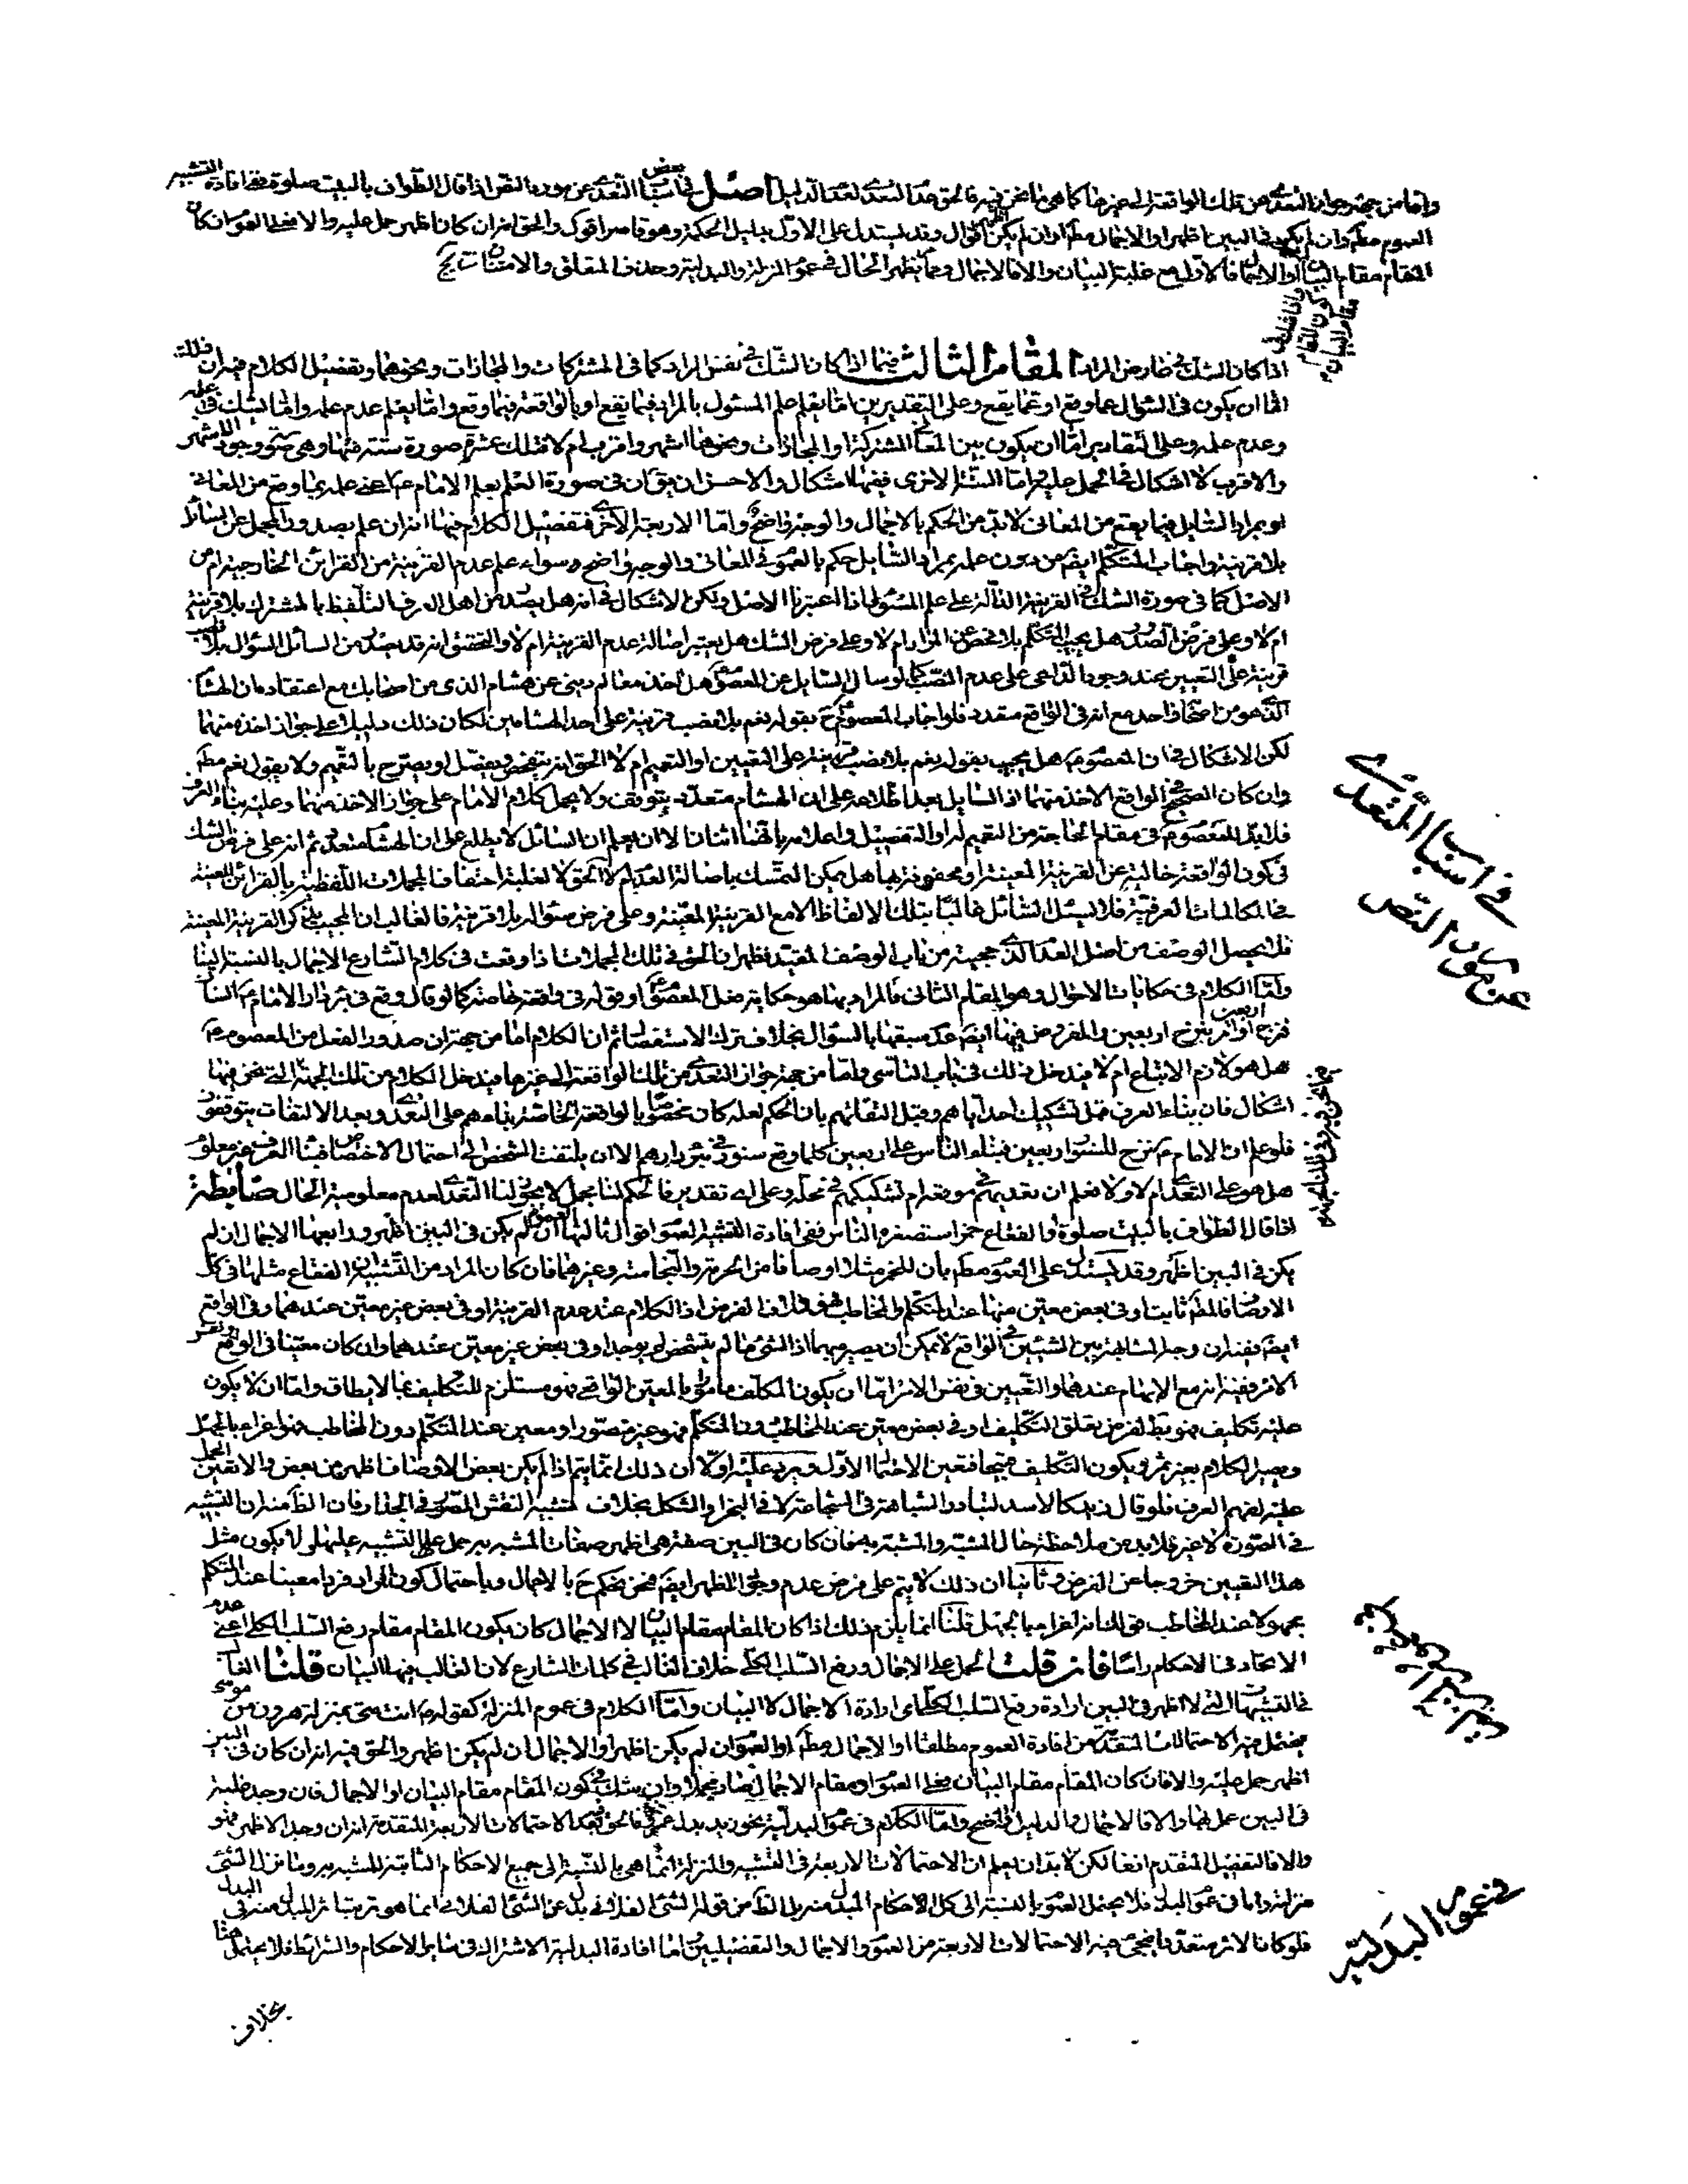 وامّا من جهة جواز التعدّى من تلك الواقعة الى غيرها كما هى ما نحن فيه فالحق عدم التعدّى لعدم الدليل اصل فى بعض اسباب التعدّى عن مورد النصّ اذا قال الطّواف بالبيت صلوة ففى افادة التشبيه
العموم مطلقا وان لم يكن فى البين اظهر او الاجمال مطلقا او ان لم يكن اظهر اقوال وقد يستدل على الاوّل بدليل الحكمة وهو قاصر اقول والحق انه ان كان اظهر حمل عليه والا فعلى العموم ان كان
المقام مقام البيان او الاجمال فالاوّل مع غلبة البيان والا فالاجمال وممّا يظهر الحال فى عموم المنزلة والبدلية وحذف المتعلق والامتنان
اذا كان الشك فى عارض المراد المقام الثالث فيما اذا كان الشّك فى نفس المراد كما فى المشتركات والمجازات ونحوهما وتفصيل الكلام فيه ان
امّا ان يكون فى السّؤال عما وقع او عمّا يقع وعلى التقديرين امّا يعلم علم المسئول بالمراد فيما يقع او بالواقعة فيما وقع وامّا يعلم عدم علمه وامّا الشّك فى علمه
وعدم علمه وعلى التقادير امّا ان يكون بين المعانى المشتركة او المجازات ونحوهما اشهر واقرب ام لا فتلك عشرة صورة ستة منها وهى صور وجود الاشهر
والاقرب لا اشكال فى الحمل عليه وامّا الستّة الاخرى ففيها اشكال والاحسن ان يقال ان فى صورة العلم بعلم الامام ع اعنى علمه بما وقع من المعانى
او بمراد السّايل فيما يقع من المعانى لا بدّ من الحكم بالاجمال والوجه واضح وامّا الاربعة الاخرى فتفصيل الكلام فيها انه ان علم بصدور المجمل عن السائل
بلا قرينة واجاب المتكلّم ايضا من دون علمه بمراد السّايل حكم بالعموم فى المعانى والوجه واضح وسواء علم عدم القرينة من القرائن الخارجية ام من
الاصل كما فى صورة الشك فى القرينة الدّالة على علم المسئول اذا اعتبرنا الاصل ولكن الاشكال فى انه هل يصدر من اهل العرف التلّفظ بالمشترك بلا قرينة
ام لا وعلى فرض الصّدور هل يجيب المتكلّم بلا فحص عن المراد ام لا وعلى فرض الشك هل يعتبر اصالة عدم القرينة ام لا والتحقيق انه قد يصدر من السائل السّؤال بلا نصب
قرينة على التعيين عند وجود الدّاعى على عدم النّصب كما لو سال السّايل عن المعصوم ع هل اخذ معالم دينى عن هشام الذى من اصحابك مع اعتقاده ان الهشام
الّذى هو من اصحابه واحد مع انه فى الواقع متعدد فلو اجاب المعصوم ع ح بقوله نعم بلا نصب قرينة على احد الهشامين لكان ذلك دليلا على جواز اخذه منهما
لكن الاشكال فى ان المعصوم ع هل يجيب بقوله نعم بلا نصب قرينة على التعيين او التعميم ام لا الحق انه يتفحص ويفصّل او يصرّح بالتعميم ولا يقول نعم مطلقا
وان كان الصحيح فى الواقع الاخذ منهما اذ السّايل بعد اطلاعه على ان الهشام متعدّد يتوقف ولا يحمل كلام الامام على جواز الاخذ منهما وعليه بناء العرف
فلا بدّ للمعصوم ع فى مقام الحاجة من التعميم له او التفصيل واعلامه بانّهما اثنان الا ان يعلم ان السّائل لا يطلع على ان الهشام متعدد ثم انه على فرض الشك
فى كون الواقعة خالية عن القرينة المعينة او محفوفة بها هل يمكن التمسّك باصالة العدم ام لا الحق لا لغلبة احتفاف المجملات اللّفظية بالقرائن المعينة
فى المكالمات العرفيّة فلا يسئل السّائل غالبا بتلك الالفاظ الا مع القرينة المعيّنة وعلى فرض سئواله بلا قرينة فالغالب ان المجيب يذكر القرينة المعينة
فلا يحصل الوصف من اصل العدم الّذى حجيته من باب الوصف المقيد فظهر ان الحق فى تلك المجملات اذا وقعت فى كلام الشارع الاجمال بالنّسبة الينا
وامّا الكلام فى حكايات الاحوال وهو المقام الثانى فالمراد بها هو حكاية فعل المعصوم ع او قوله فى واقعة خاصة كما لو قال وقع فى بئر دار الامام ع السنّور
فنزح اربعين او امر بنزح اربعين والمفروض فيها ايضا عدم سبقها بالسّؤال بخلاف ترك الاستفصال ثم ان الكلام امّا من جهة ان صدور الفعل من المعصوم ع
هل هو لازم الاتباع ام لا فيدخل ذلك فى باب التاسّى وامّا من جهة جواز التعدّى من تلك الواقعة الى غيرها فيدخل الكلام من تلك الجهة التى نحن فيها
اشكال فان بناء العرف قبل تشكيك احد اياهم وقبل التفاتهم بان الحكم لعله كان مختصّا بالواقعة الخاصّة بناءهم على التعدّى وبعد الالتفات يتوقفون
فلو علم ان الامام ع نزح للسّنور اربعين فبناء النّاس على اربعين كلما وقع سنّور فى بئر دارهم الا ان يلتفت الشخص الى احتمال الاختصاص فبناء العرف غير معلوم
هل هو على التعدّى ام لا ولا نعلم ان تعديهم فى موقعه ام تشكيكهم فى محلّه وعلى اى تقدير فالحكم لنا مجمل لا يجوز لنا التعدّى لعدم معلومية الحال ضابطة
اذا قال الطواف بالبيت صلوة او الفقاع خمر استصغره النّاس ففى افادة التشبيه العموم اقوال ثالثها العموم ان لم يكن فى البين اظهر ورابعها الاجمال ان لم
يكن فى البين اظهر وقد يستدل على العموم مطلقا بان للخمر مثلا اوصافا من الحرمة والنّجاسة وغيرهما فان كان المراد من التشبيه ان الفقاع مثلها فى كل
الاوصاف فالمط ثابت او فى بعض معيّن منها عند المتكلّم والمخاطب فهو خلاف الفرض اذ الكلام عند عدم القرينة او فى بعض غير معيّن عندهما وفى الواقع
ايضا فيفند ان وجه المشابهة بين الشيئين فى الواقع لا يمكن ان يصير مبهما اذ الشئ ما لم يتشخص لم يوجد او فى بعض غير معيّن عندهما وان كان معيّنا فى الواقع ونفس
الامر ففيه انه مع الابهام عندهما والتعيين فى نفس الامر امّا ان يكون المكلّف مامورا بالمعيّن الواقعى فهو مستلزم للتّكليف بما لا يطاق وامّا ان لا يكون
عليه تكليف فهو بط لفرض تعلق التّكليف او فى بعض معيّن عند المخاطب دون المتكلّم فهو غير متصوّر او معين عند المتكلّم دون المخاطب فهو اغراء بالجهل
ويصير الكلام بغير ثمر ويكون التّكليف قبيحا فتعين الاحتمال الاوّل ويرد عليه اوّلا ان ذلك انّما يتم اذا لم يكن بعض الاوصاف اظهر من بعض والا تعيّن الحمل
عليه لفهم العرف فلو قال زيد كالاسد لتبادر الشباهة فى الشّجاعة لا فى البخر او الشكل بخلاف تشبيه النّقش المصوّر فى الجدار فان الظّاهر منه ان التّشبيه
فى الصّورة لا غير فلا بد من ملاحظة حال المشبّه والمشبّه به فان كان فى البين صفة هى اظهر صفات المشبه به حمل على التشبيه عليها لا يكون مثل
هذا التعيين خروجا عن الفرض وثانيا ان ذلك لا يتم على فرض عدم وجود الاظهر ايضا فنحن نحكم ح بالاجمال وباحتمال كون المراد فردا معينا عند المتكلّم
مجهولا عند المخاطب قولك انه اغراء بالجهل قلنا انما يلزم ذلك اذا كان المقام مقام البيان لا الاجمال كان يكون المقام مقام رفع السّلب الكلّى اعنى عدم
الاتحاد فى الاحكام راسا فان قلت الحمل على الاجمال ورفع السّلب الكلّى خلاف الغالب فى كلمات الشارع لان الغالب فيها البيان قلنا الغالب
فى التشبيهات التى لا اظهر فى البين ارادة رفع السّلب الكلّى اى ارادة الاجمال لا البيان وامّا الكلام فى عموم المنزلة كقوله ع انت منّى بمنزلة هرون من موسى
فيحتمل فيه الاحتمالات المتقدّمة من افادة العموم مطلقا او الاجمال مطلقا او العموم ان لم يكن اظهر او الاجمال ان لم يكن اظهر والحق فيه انه ان كان فى البين
اظهر حمل عليه والا فان كان المقام مقام البيان فعلى العموم او مقام الاجمال فصار مجملا وان شك فى كون المقام مقام البيان او الاجمال فان وجد غلبة
فى البين عمل بها والا فالاجمال والدليل واضح وامّا الكلام فى عموم البدليّة نحو زيد بدل عمرو فالحق فيه الاحتمالات الاربعة المتقدمة انه ان وجد الاظهر فهو
والا فالتفصيل المتقدم انفا لكن لا بد ان يعلم ان الاحتمالات الاربعة فى التشبيه والمنزلة انّما هى بالنّسبة الى جميع الاحكام الثابتة للمشبه به وما نزل الشئ
منزلته وامّا فى عموم البدل فلا يحتمل العموم بالنسبة الى كل الاحكام المبدل منه بل الظّاهر من قوله الشئ الفلانى بدل عن الشئ الفلانى انما هو ترتب اثر المبدل منه فى البدل
فلو كان الاثر متعدّدا فيجئ فيه الاحتمالات الاربعة من العموم والاجمال والتفصيلين امّا افادة البدلية الاشتراك فى ساير الاحكام والشرايط فلا يحتمل هنا
بخلاف
فى اسباب التعدّى
عن مورد النّص
فى عموم البدليّة